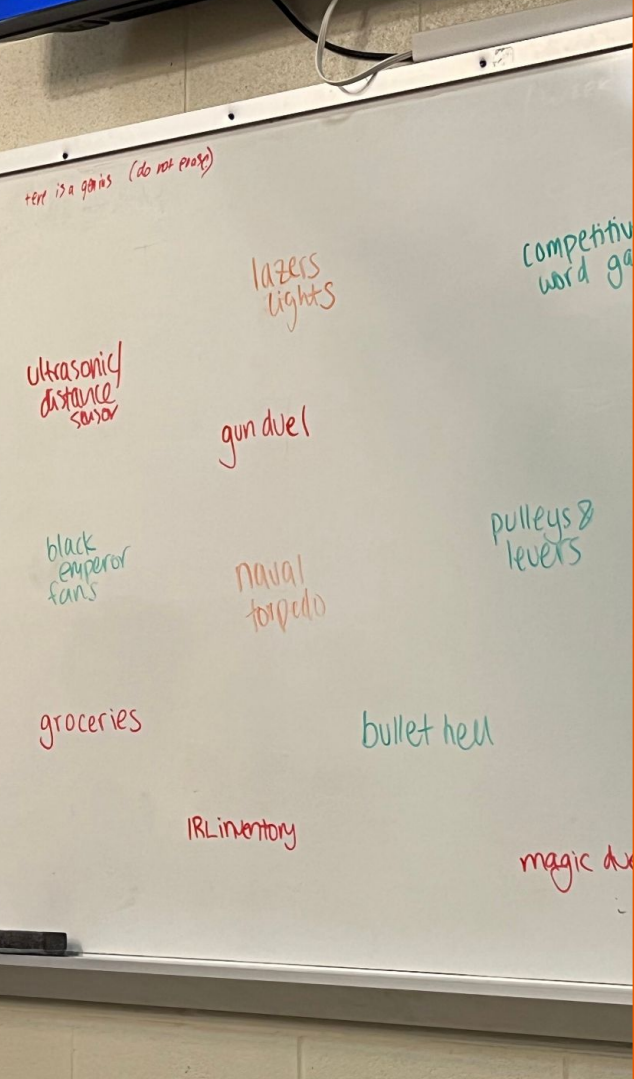 is a genius (do not erase)
lazers
lights
competitiv
word ga
ultrasonic/
distance
sensor
gun duel
black
emperor
fans
pulleys &
levers
naval
torpedo
groceries
bullet hell
IRL inventory
magic du